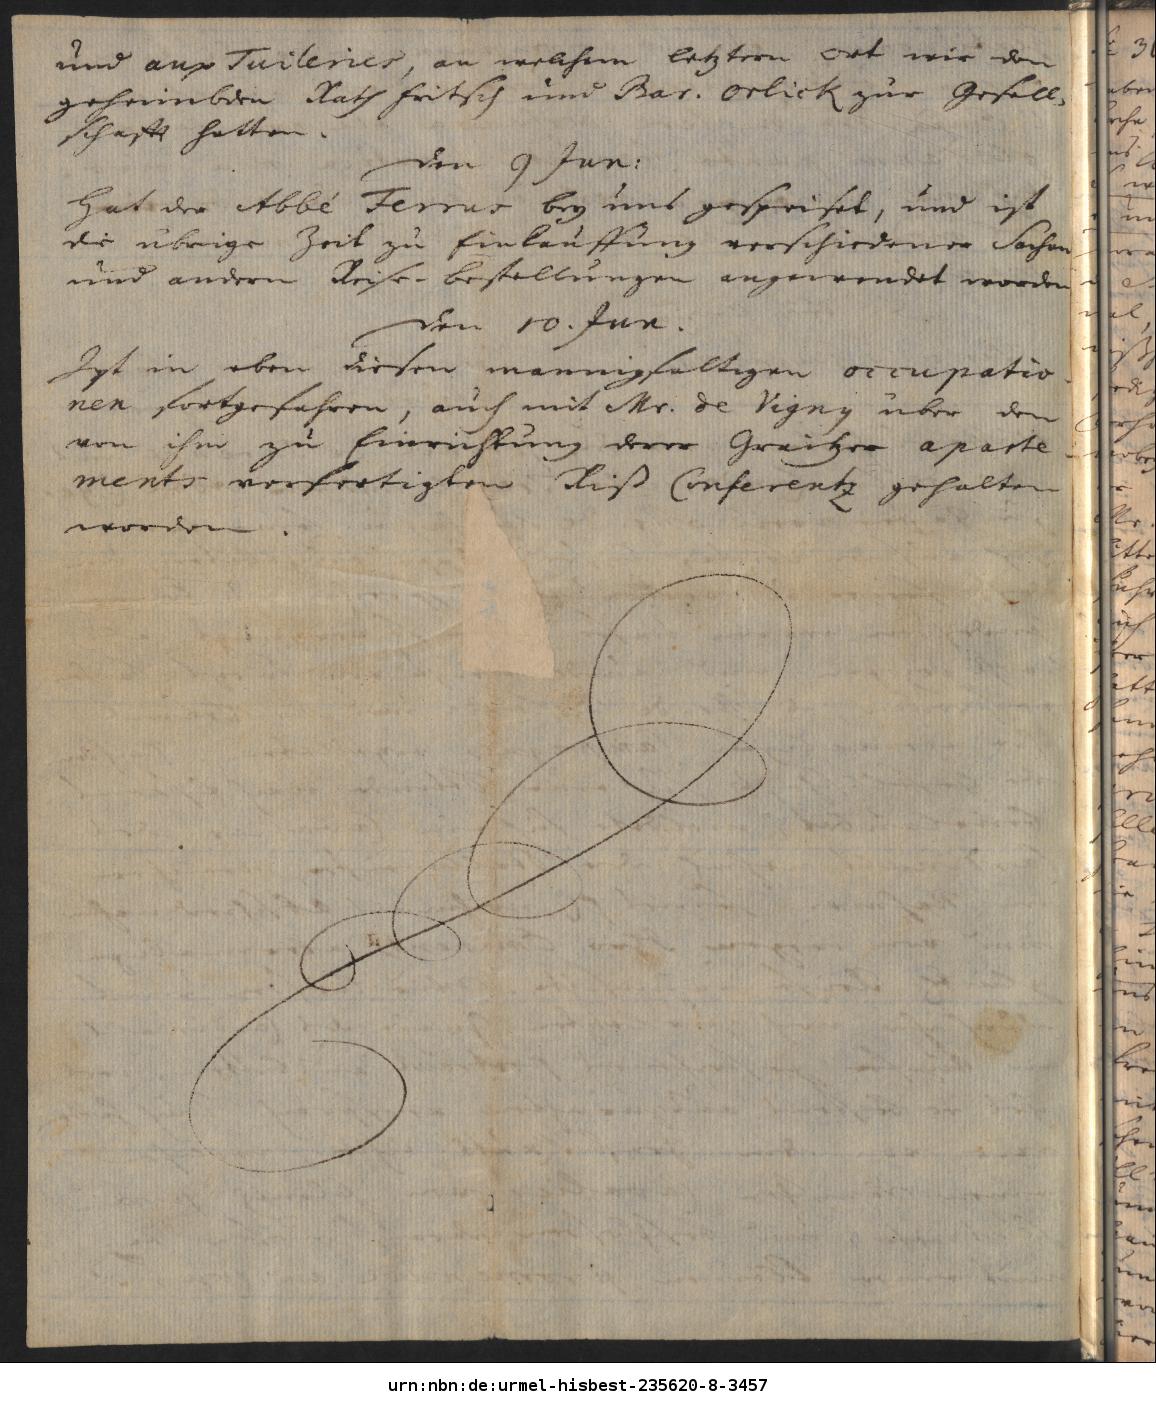 und aux Tuileries, an welchem letztern Ort wir den
geheimbden Rath Fritsch und Bar. Orlick zur Gesell-
schafft hatten.
den 9 Jun:
Hat der Abbé Ferrus bey uns gespeiset, und ist
die übrige Zeit zu Einkauffung verschiedener Sachen
und andern Reise-bestellungen angewendet worden
den 10. Jun.
Ist in eben diesen mannigfaltigen occupatio-
nen fortgefahren, auch mit Mr. de Vigny über den
von ihm zu Einrichtung derer Graitzer aparte-
ments verfertigten Riß Conferentz gehalten
worden.
urn:nbn:de:urmel-hisbest-235620-8-3457